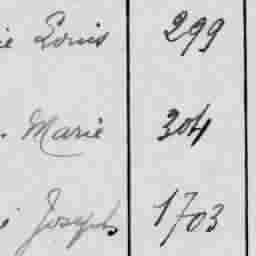 ie Louis 299
. Marie 304
i Joseph 1703